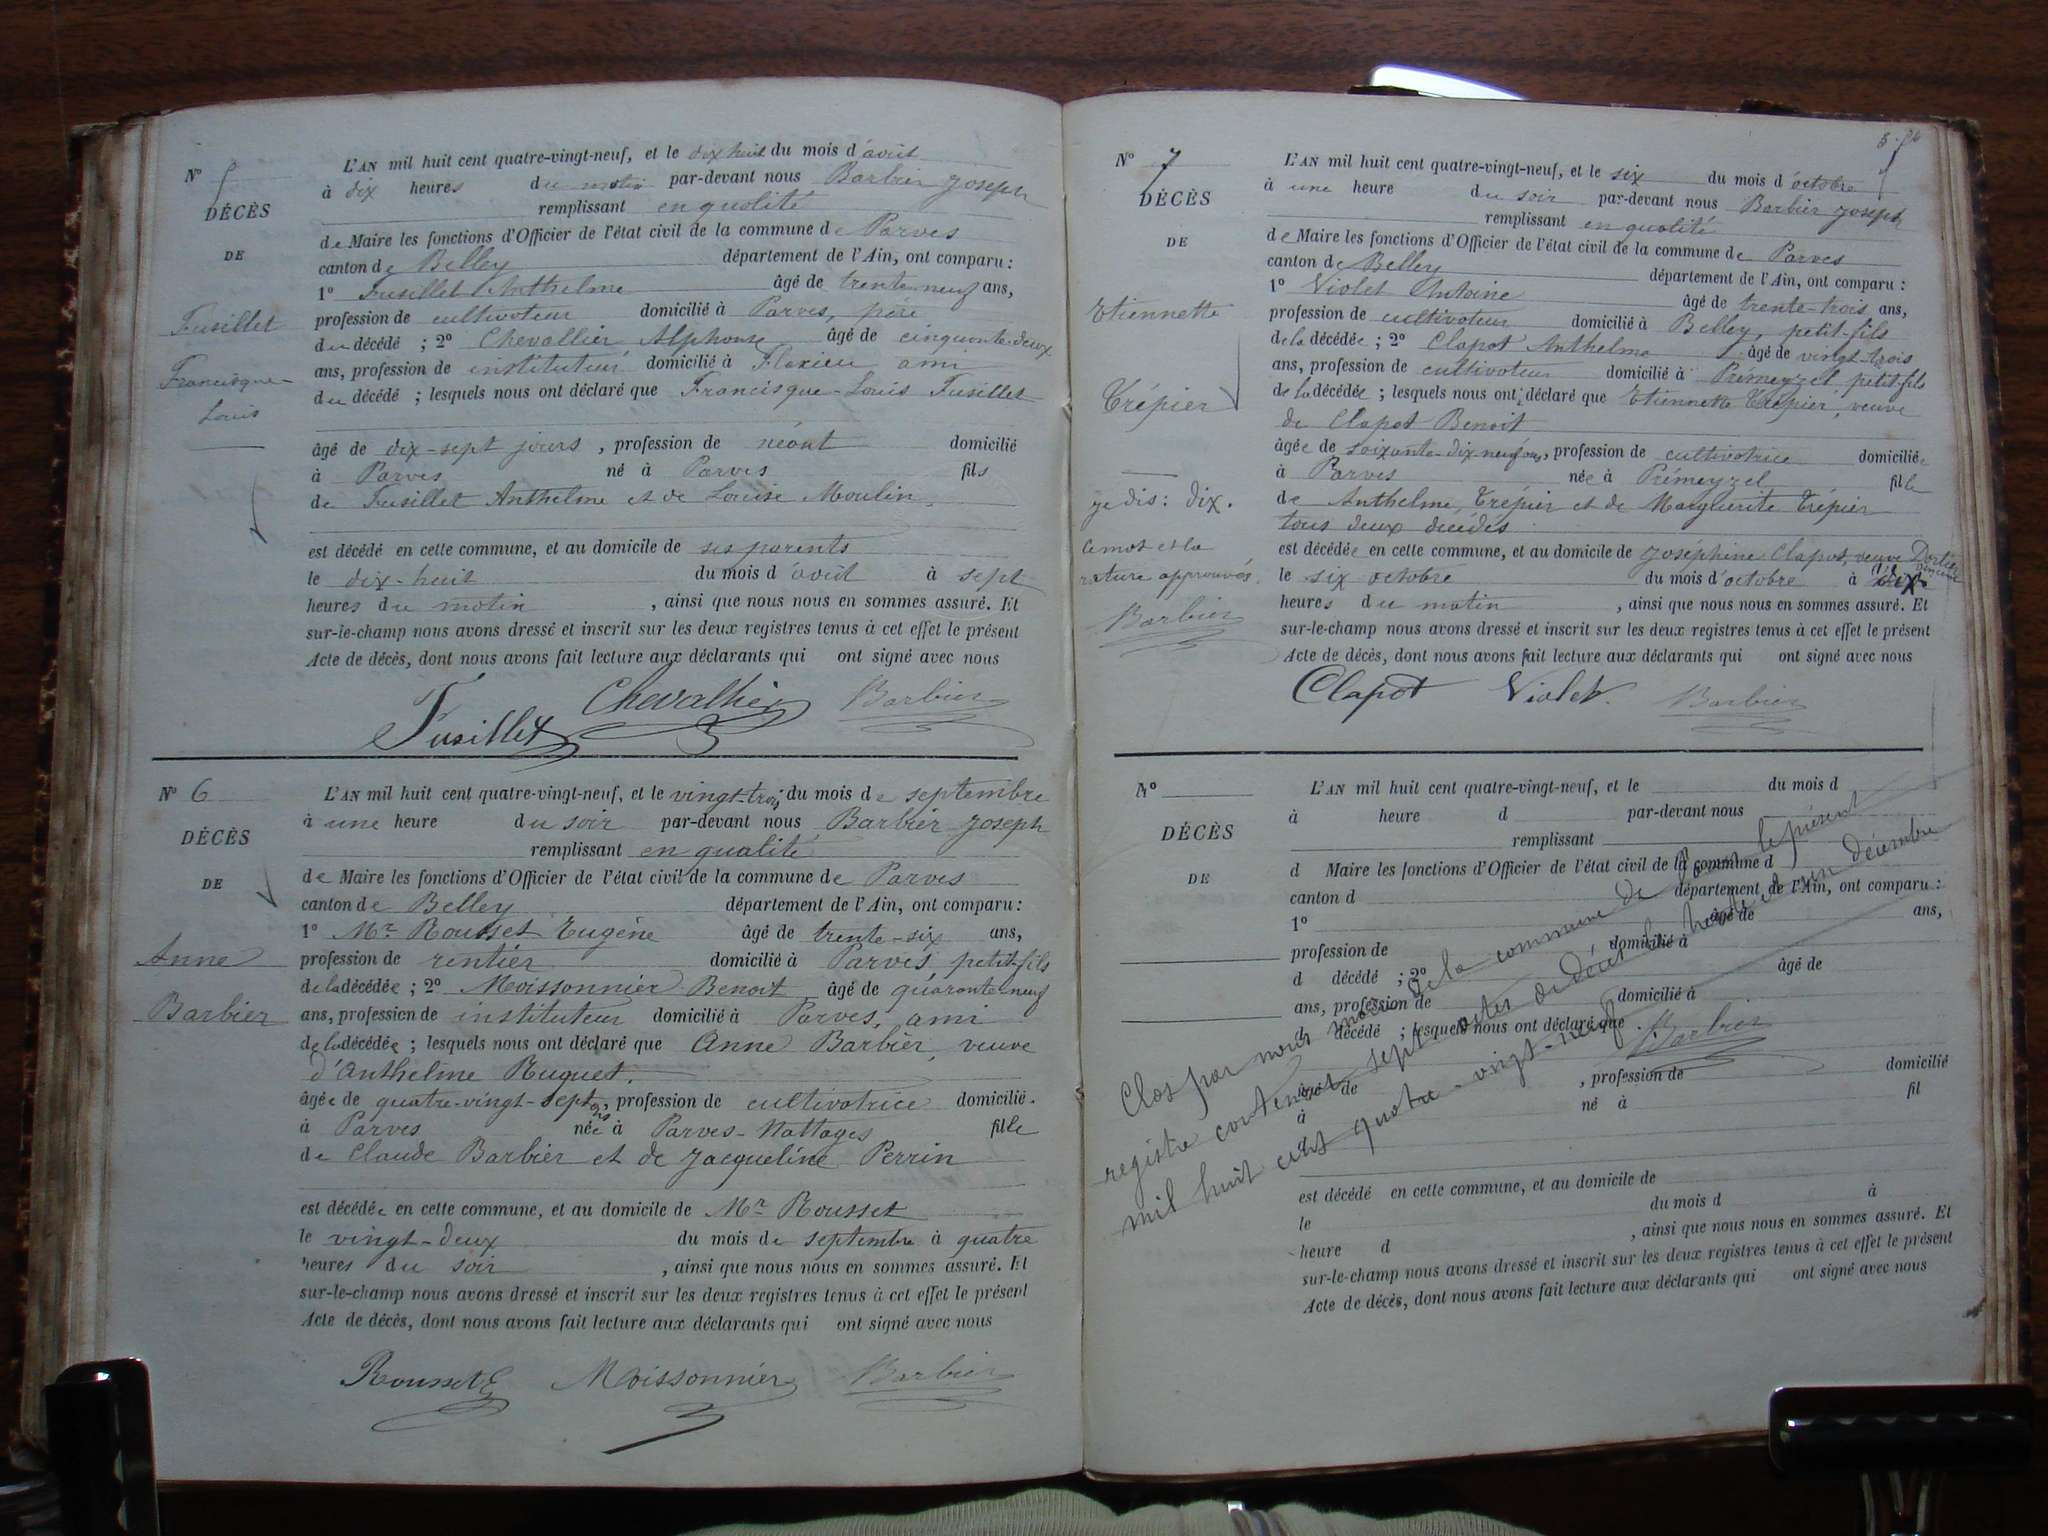 N° 5
DÉCÈS
DE
Fusillet
Francisque
Louis
L'AN mil huit cent quatre-vingt-neuf, et le dix huit du mois d'août
à dix heures du matin par-devant nous Barbier Joseph
remplissant en qualité
de Maire les fonctions d'Officier de l'état civil de la commune de Parves
canton de Belley département de l'Ain, ont comparu :
1° Fusillet Anthelme âgé de trente neuf ans,
profession de cultivateur domicilié à Parves, père
du décédé ; 2° Chevallier Alphonse âgé de cinquante-deux
ans, profession de instituteur domicilié à Flaxieu ami
du décédé ; lesquels nous ont déclaré que Francisque-Louis Fusillet
âgé de dix-sept jours, profession de néant domicilié
à Parves né à Parves fils
de Fusillet Anthelme et de Louise Moulin.
est décédé en cette commune, et au domicile de ses parents
le dix-huit du mois d'août à sept
heures du matin, ainsi que nous nous en sommes assuré. Et
sur-le-champ nous avons dressé et inscrit sur les deux registres tenus à cet effet le présent
Acte de décès, dont nous avons fait lecture aux déclarants qui ont signé avec nous
Fusillet Chevallier Barbier
N° 6
DÉCÈS
DE
Anne
Barbier
L'AN mil huit cent quatre-vingt-neuf, et le vingt-trois du mois de septembre
à une heure du soir par-devant nous Barbier Joseph
remplissant en qualité
de Maire les fonctions d'Officier de l'état civil de la commune de Parves
canton de Belley département de l'Ain, ont comparu :
1° Mr Rousset Eugène âgé de trente-six ans,
profession de rentier domicilié à Parves, petit-fils
de la décédée ; 2° Moissonnier Benoit âgé de quarante neuf
ans, profession de instituteur domicilié à Parves, ami
de la décédée ; lesquels nous ont déclaré que Anne Barbier, veuve
d'Anthelme Ruguet.
âgée de quatre-vingt-sept ans, profession de cultivatrice domicilié.
à Parves née à Parves-Nattages fille
de Claude Barbier et de Jacqueline Perrin
est décédée en cette commune, et au domicile de Mr Rousset
le vingt-deux du mois de septembre à quatre
heures du soir, ainsi que nous nous en sommes assuré. Et
sur-le-champ nous avons dressé et inscrit sur les deux registres tenus à cet effet le présent
Acte de décès, dont nous avons fait lecture aux déclarants qui ont signé avec nous
Rousset E Moissonnier Barbier
N° 7
DÉCÈS
DE
Etiennette
Trépier
je dis : dix.
le mot et la
rature approuvés.
Barbier
L'AN mil huit cent quatre-vingt-neuf, et le six du mois d'octobre
à une heure du soir par-devant nous Barbier Joseph
remplissant en qualité
de Maire les fonctions d'Officier de l'état civil de la commune de Parves
canton de Belley département de l'Ain, ont comparu :
1° Violet Antoine âgé de trente-trois ans,
profession de cultivateur domicilié à Belley, petit-fils
de la décédée ; 2° Clapot Anthelme âgé de vingt-trois
ans, profession de cultivateur domicilié à Prémeyzel petit-fils
de la décédée ; lesquels nous ont déclaré que Etiennette Trépier, veuve
de Clapot Benoit
âgée de soixante-dix-neuf ans, profession de cultivatrice domiciliée
à Parves née à Prémeyzel fille
de Anthelme Trépier et de Marguerite Trépier
tous deux décédés
est décédée en cette commune, et au domicile de Joséphine Clapot, veuve
le six octobre du mois d'octobre à dix
heures du matin, ainsi que nous nous en sommes assuré. Et
sur-le-champ nous avons dressé et inscrit sur les deux registres tenus à cet effet le présent
Acte de décès, dont nous avons fait lecture aux déclarants qui ont signé avec nous
Clapot Violet. Barbier
N°
DÉCÈS
DE
L'AN mil huit cent quatre-vingt-neuf, et le du mois d
à heure d par-devant nous
remplissant
d Maire les fonctions d'Officier de l'état civil de la commune d
canton d département de l'Ain, ont comparu :
1° âgé de ans,
profession de domicilié à
d décédé ; 2° âgé de
ans, profession de domicilié à
d décédé ; lesquels nous ont déclaré que
âgé de , profession de domicilié
à né à fil
d
est décédé en cette commune, et au domicile de
le du mois d à
heure d , ainsi que nous nous en sommes assuré. Et
sur-le-champ nous avons dressé et inscrit sur les deux registres tenus à cet effet le présent
Acte de décès, dont nous avons fait lecture aux déclarants qui ont signé avec nous
Clos par nous maire de la commune de Parves le présent
registre contenant sept actes de décès le trente et un décembre
mil huit cent quatre-vingt-neuf
Barbier